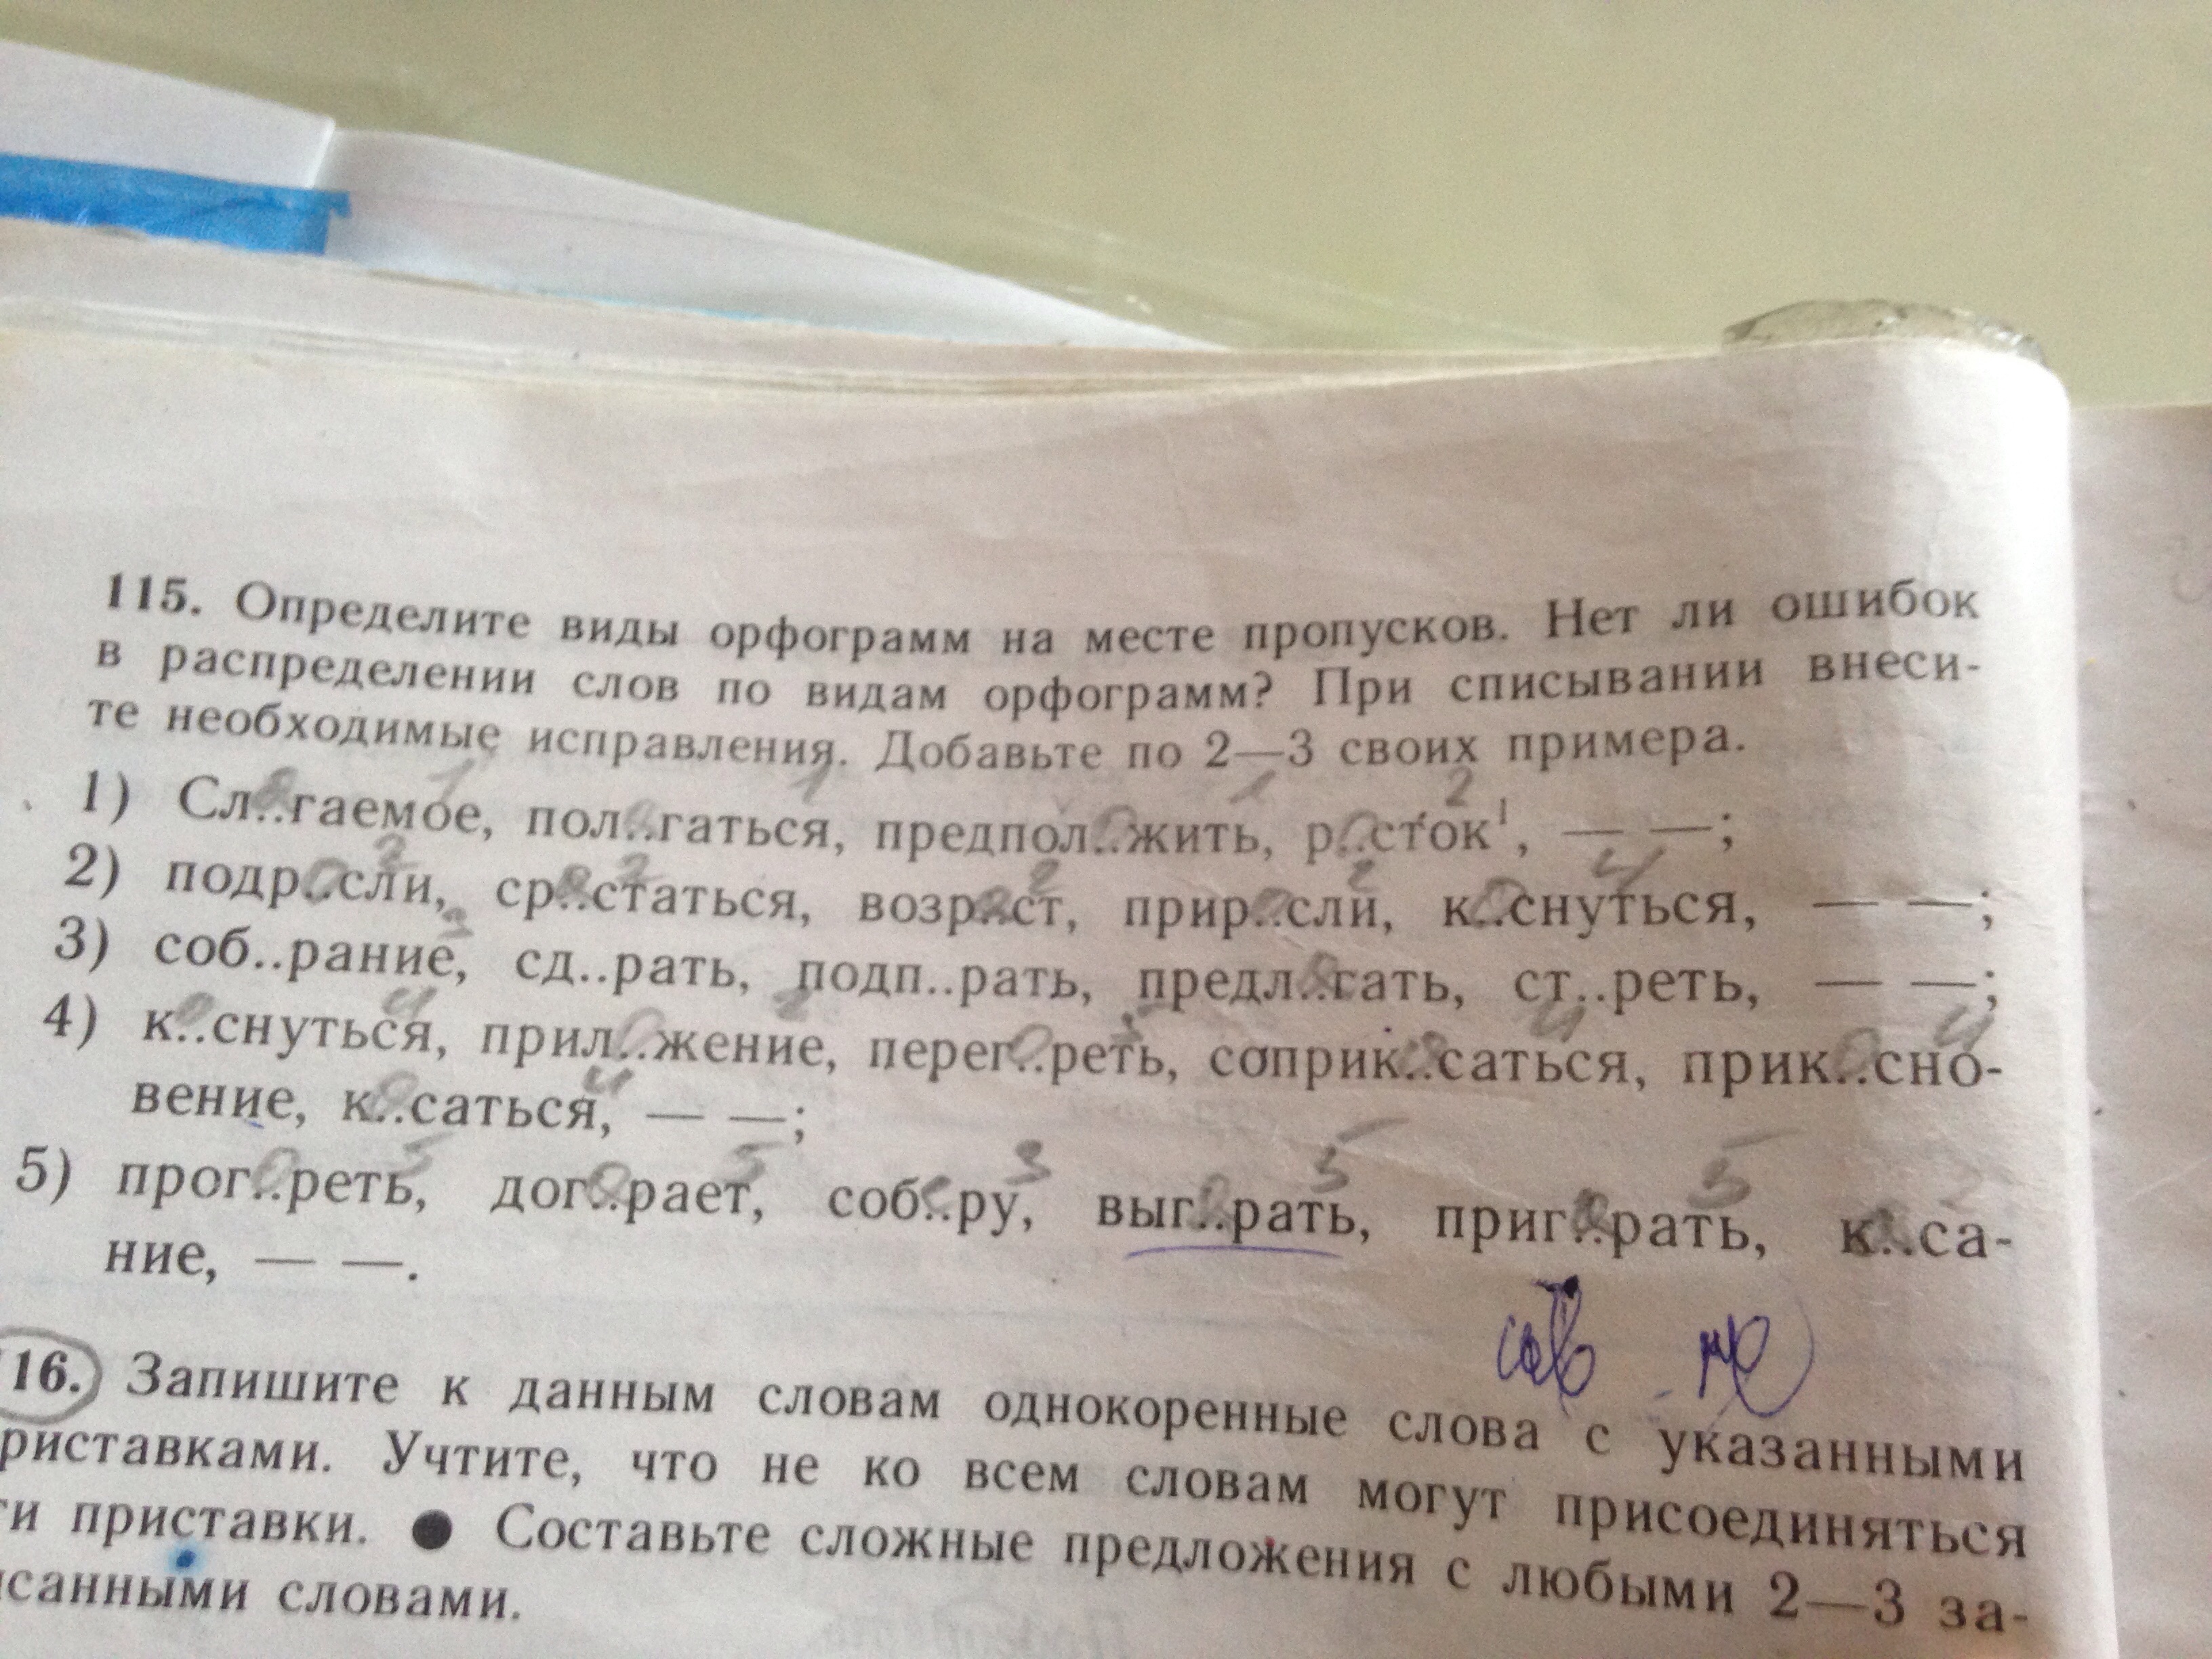 115. Определите виды орфограмм на месте пропусков. Нет ли ошибок
в распределении слов по видам орфограмм? При списывании внеси-
те необходимые исправления. Добавьте по 2—3 своих примера.
1) Сл..гаемое, пол..гаться, предпол..жить, р..сток¹, — —;
2) подр..сли, ср..статься, возр..ст, прир..сли, к..снуться, — —;
3) соб..рание, сд..рать, подп..рать, предл..гать, ст..реть, — —;
4) к..снуться, прил..жение, перег..реть, соприк..саться, прик..сно-
вение, к..саться, — —;
5) прог..реть, дог..рает, соб..ру, выг..рать, приг..рать, к..са-
ние, — —.
16. Запишите к данным словам однокоренные слова с указанными
риставками. Учтите, что не ко всем словам могут присоединяться
ти приставки. ● Составьте сложные предложения с любыми 2—3 за-
исанными словами.